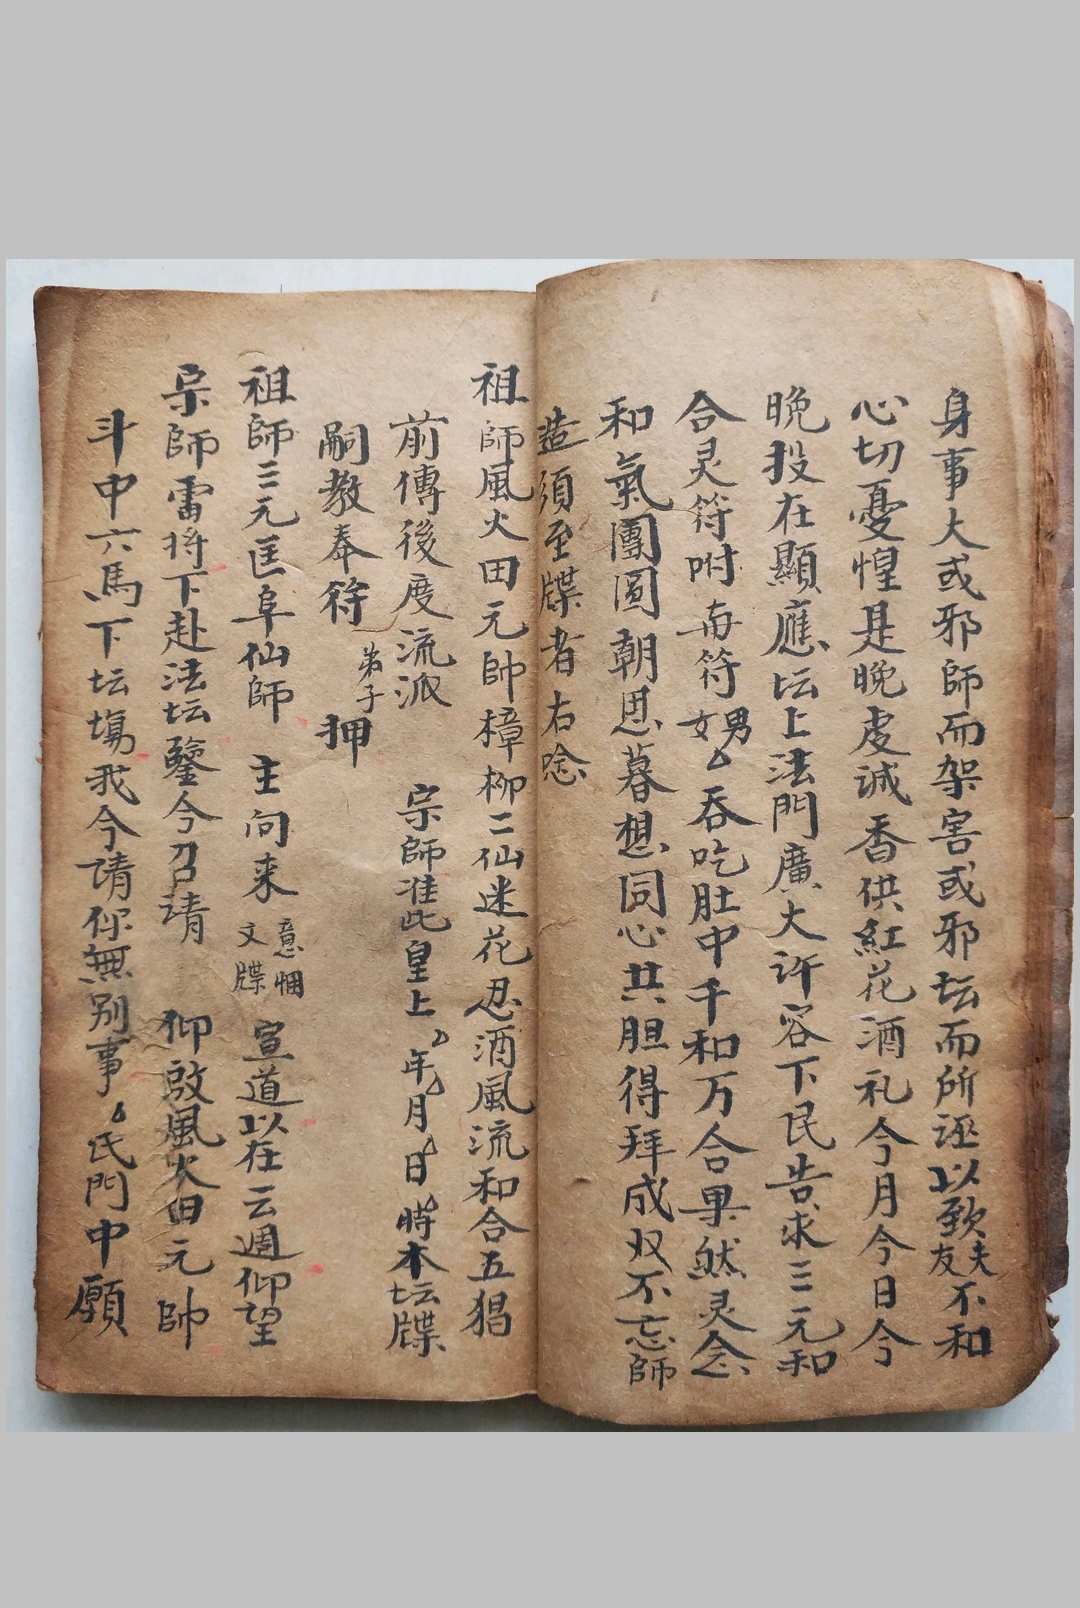 身事大或邪師而架害或邪坛而所誣以致夫友不和
心切憂惶是晚虔诚香供紅花酒礼今月今日今
晚投在顯應坛上法門廣大许容下民告求三元和
合灵符咐与符男女吞吃肚中千和万合果然灵念
和氣團圓朝思暮想同心共胆得拜成双不忘師
造須至牒者右唸
祖師風火田元帥樟柳二仙迷花忍酒風流和合五猖
前傳後度流派 宗師准此皇上年月日時本坛牒
嗣教奉符弟子押
祖師三元匡阜仙師 主向来意悃文牒宣道以在云週仰望
宗師雷将下赴法坛鑒今召请 仰啟風火田元帥
斗中六馬下坛塲我今请你無别事氏門中願